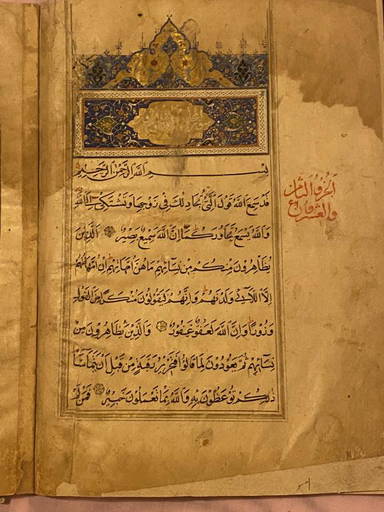 بسم الله الرحمن الرحيم
قد سمع الله قول التي تجادلك في زوجها وتشتكي إلى الله
والله يسمع تحاوركما إن الله سميع بصير الذين
يظاهرون منكم من نسائهم ما هن أمهاتهم إن أمهاتهم
إلا اللائي ولدنهم وإنهم ليقولون منكرا من القول
وزورا وإن الله لعفو غفور والذين يظاهرون من
نسائهم ثم يعودون لما قالوا فتحرير رقبة من قبل أن يتماسا
ذلكم توعظون به والله بما تعملون خبير فمن لم
الجزو الثامن
والعشرون